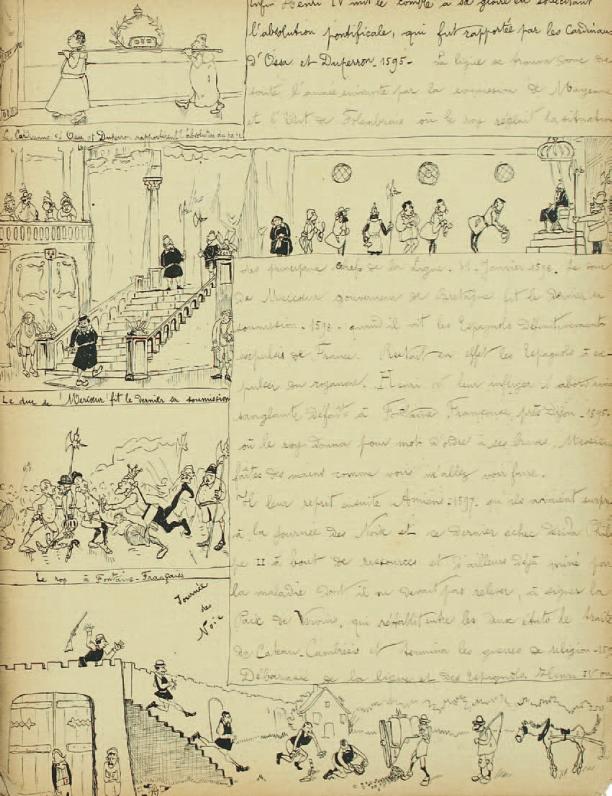 Enfin Henri IV mit le comble à sa gloire en sollicitant
l'absolution pontificale, qui fut rapportée par les Cardinaux
d'Ossa et Duperron_1595_ La ligue se trouva donc
l'année suivante par la soumission de Mayenne
et l'édit de Folembray où le roy réglait la situation
Les Cardinaux d'Ossa et Duperron rapportèrent l'absolution du pape
des principaux chefs de la Ligue. Janvier 1596. Le duc
de Mercoeur gouverneur de Bretagne fit le dernier sa
soumission_1598_ quand il vit les Espagnols définitivement
expulsés de France. Restait en effet les Espagnols à ex
pulser du royaume. Henri IV leur infligea d'abord une
sanglante défaite à Fontaine Française près Dijon_1595_
où le roy donna pour mot d'ordre à ses braves, Messieurs
faites des mains comme vous m'allez voir faire.
Il leur reprit ensuite Amiens_1597_ qu'ils avaient surpris
à la journée des Noix et ce dernier échec décida Phili
pe II à bout de ressources et d'ailleurs déjà miné par
la maladie dont il ne devait pas relever, à signer la
Paix de Vervins, qui rétablit entre les deux états le traité
de Cateau-Cambrésis et termina les guerres de religion_
Débarrassé de la ligue et des Espagnols Henri IV
Le duc de Mercoeur fit le dernier sa soumission
Le roy à Fontaine-Française
Journée
des
Noix